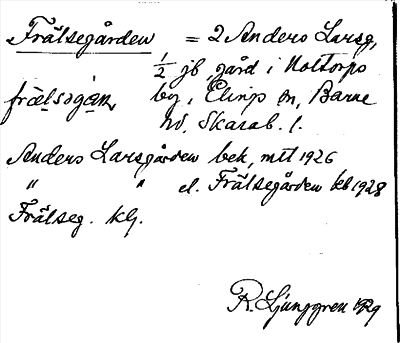 Frälsegården = 2 Anders Larsg,
1/2 jb, gård i Nottorps
frælsəgaɳ by, Elings sn, Barne
hd, Skarab. l.
Anders Larsgården bek, mtl 1926
" " el. Frälsegården kb 1928
Frälseg. klj.
R. Ljunggren 1929